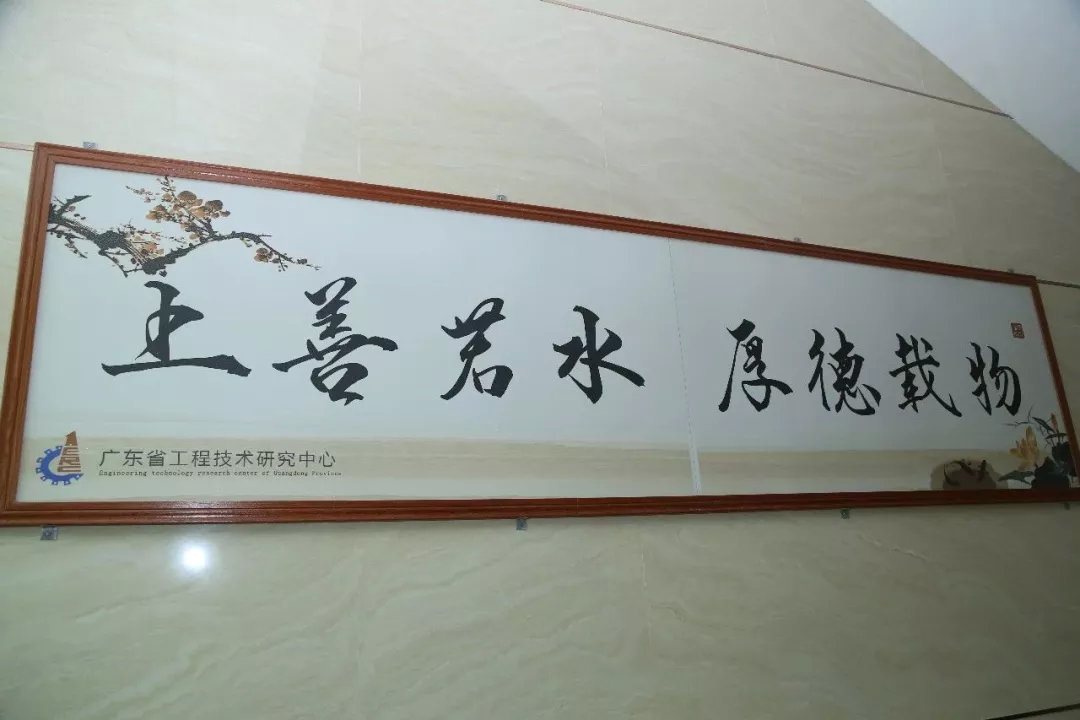 上善若水 厚德载物
广东省工程技术研究中心
Engineering technology research center of Guangdong Province